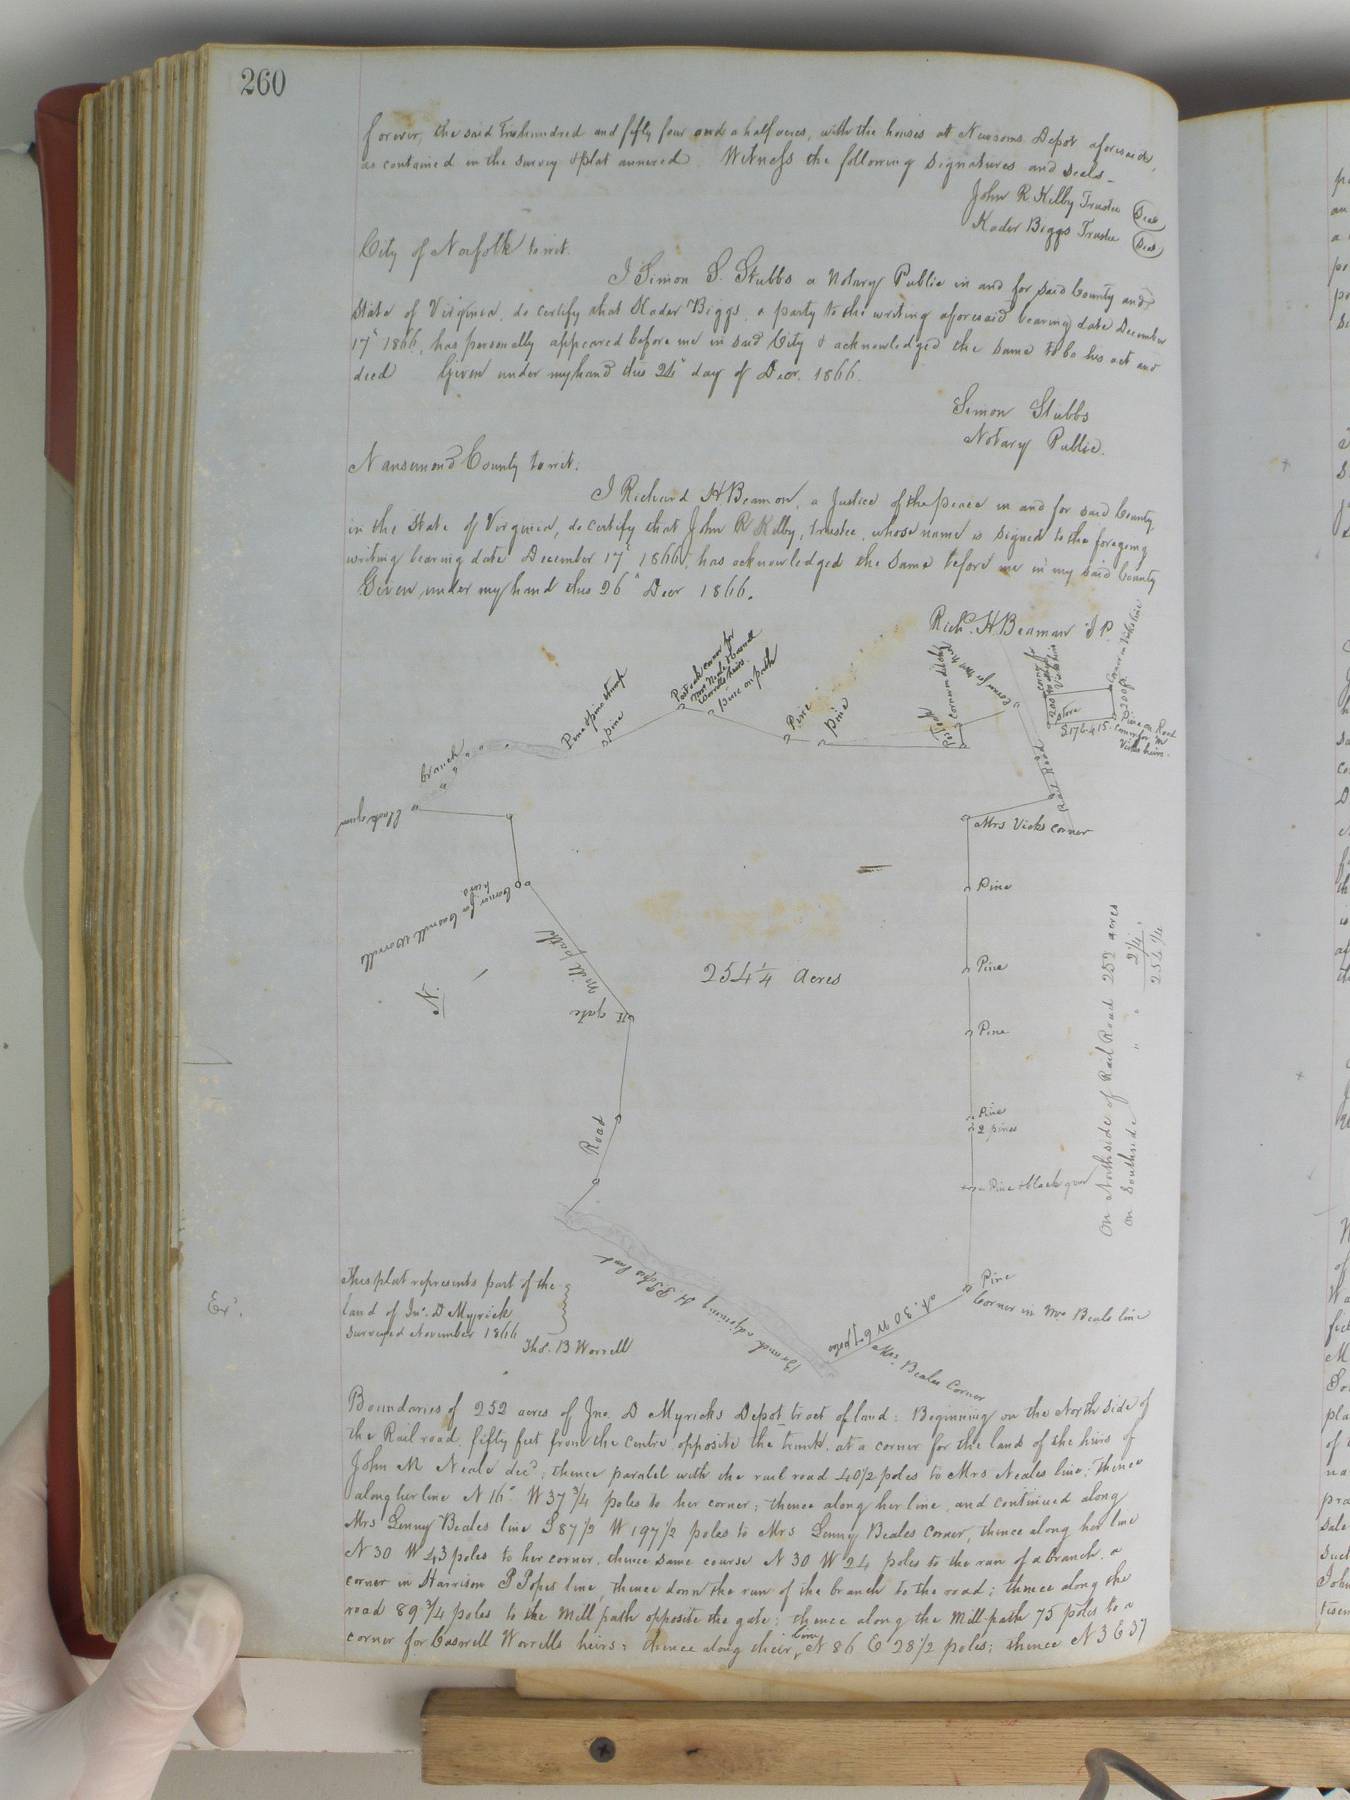 260
forever, the said Two hundred and fifty four and a half acres, with the houses at Newsoms Depot aforesaid,
as contained in the survey & plat annexed. Witness the following signatures and seals—
John R Kilby Trustee Seal
Kader Biggs Trustee Seal
City of Norfolk to wit.
I Simon S. Stubbs a Notary Public in and for said County and
State of Virginia, do certify that Kader Biggs, a party to the writing aforesaid bearing date December
17" 1866, has personally appeared before me in said City & acknowledged the same to be his act and
deed Given under my hand this 24" day of Decr. 1866.
Simon Stubbs
Notary Public.
Nansemond County to wit.
I Richard H Beamon, a Justice of the peace in and for said County
in the State of Virginia, do certify that John R Kilby, trustee, whose name is signed to the foregoing
writing bearing date December 17" 1866, has acknowledged the same before me in my said County
Given under my hand this 26" Decr 1866.
Richd. H Beaman J P.
Post oak corner for
Mrs Neale & Carrell
Worrells heirs.
pine on path
Pine & pine stump
pine
Pine
Pine
Post oak
Corner in path
corner for Mrs
Store
200 p
S 17 6 4 15
Pine on Road
corner for M
Vicks heirs.
Corner in Vicks line
Rail Road
branch
black gum
Mrs Vicks corner
Corner for Caswell Worrells
heirs
Pine
Mill path
N.
254 1/4 Acres
Pine
gate
Pine
Pine
2 pines
Road
Pine & black gum
On Northside of Rail Road 252 acres
on Southside " " 2 1/4 "
254 1/4
Branch adjoining H P Popes land
Pine
Corner in Mrs Beals line
N. 30 W 67 poles
Mrs. Beales Corner
Ex'.
This plat represents part of the
land of Jno. D Myrick
Surveyed November 1866
Thos. B Worrell
Boundaries of 252 acres of Jno. D Myricks Depot tract of land: Beginning on the North side of
the Rail road, fifty feet from the centre, opposite the trunk, at a corner for the lands of the heirs of
John M Neale decd; thence paralel with the rail road 40 1/2 poles to Mrs Neales line; thence
along her line N 16° W 37 3/4 poles to her corner; thence along her line, and continued along
Mrs Lenny Beales line S 87 1/2 W 197 1/2 poles to Mrs Lenny Beales corner, thence along her line
N 30 W 43 poles to her corner, thence same course N 30 W 24 poles to the run of a branch, a
corner in Harrison P Popes line thence down the run of the branch to the road; thence along the
road 89 3/4 poles to the Mill path opposite the gate; thence along the Mill path 75 poles to a
corner for Caswell Worrells heirs; thence along their line N 86 E 28 1/2 poles; thence N 3 E 37